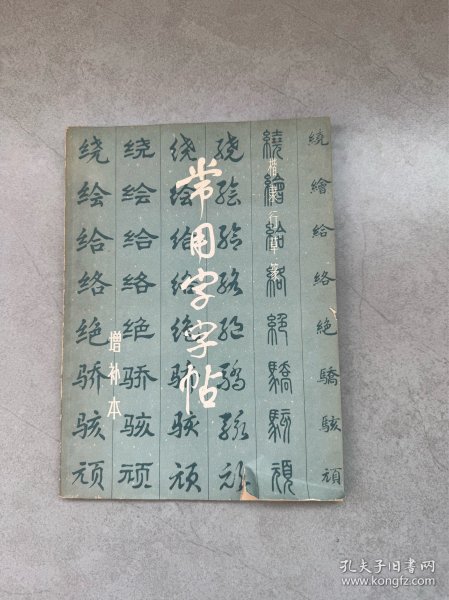 常用字字帖
楷隶行草篆
增补本
绕 绕 绕 绕 繞 繞
绘 绘 绘 绘 繪 繪
给 给 给 给 給 給
络 络 络 络 絡 絡
绝 绝 绝 绝 絕 絶
骄 骄 骄 骄 驕 驕
骇 骇 骇 骇 駭 駭
顽 顽 顽 顽 頑 頑
孔夫子旧书网
www.kongfz.com